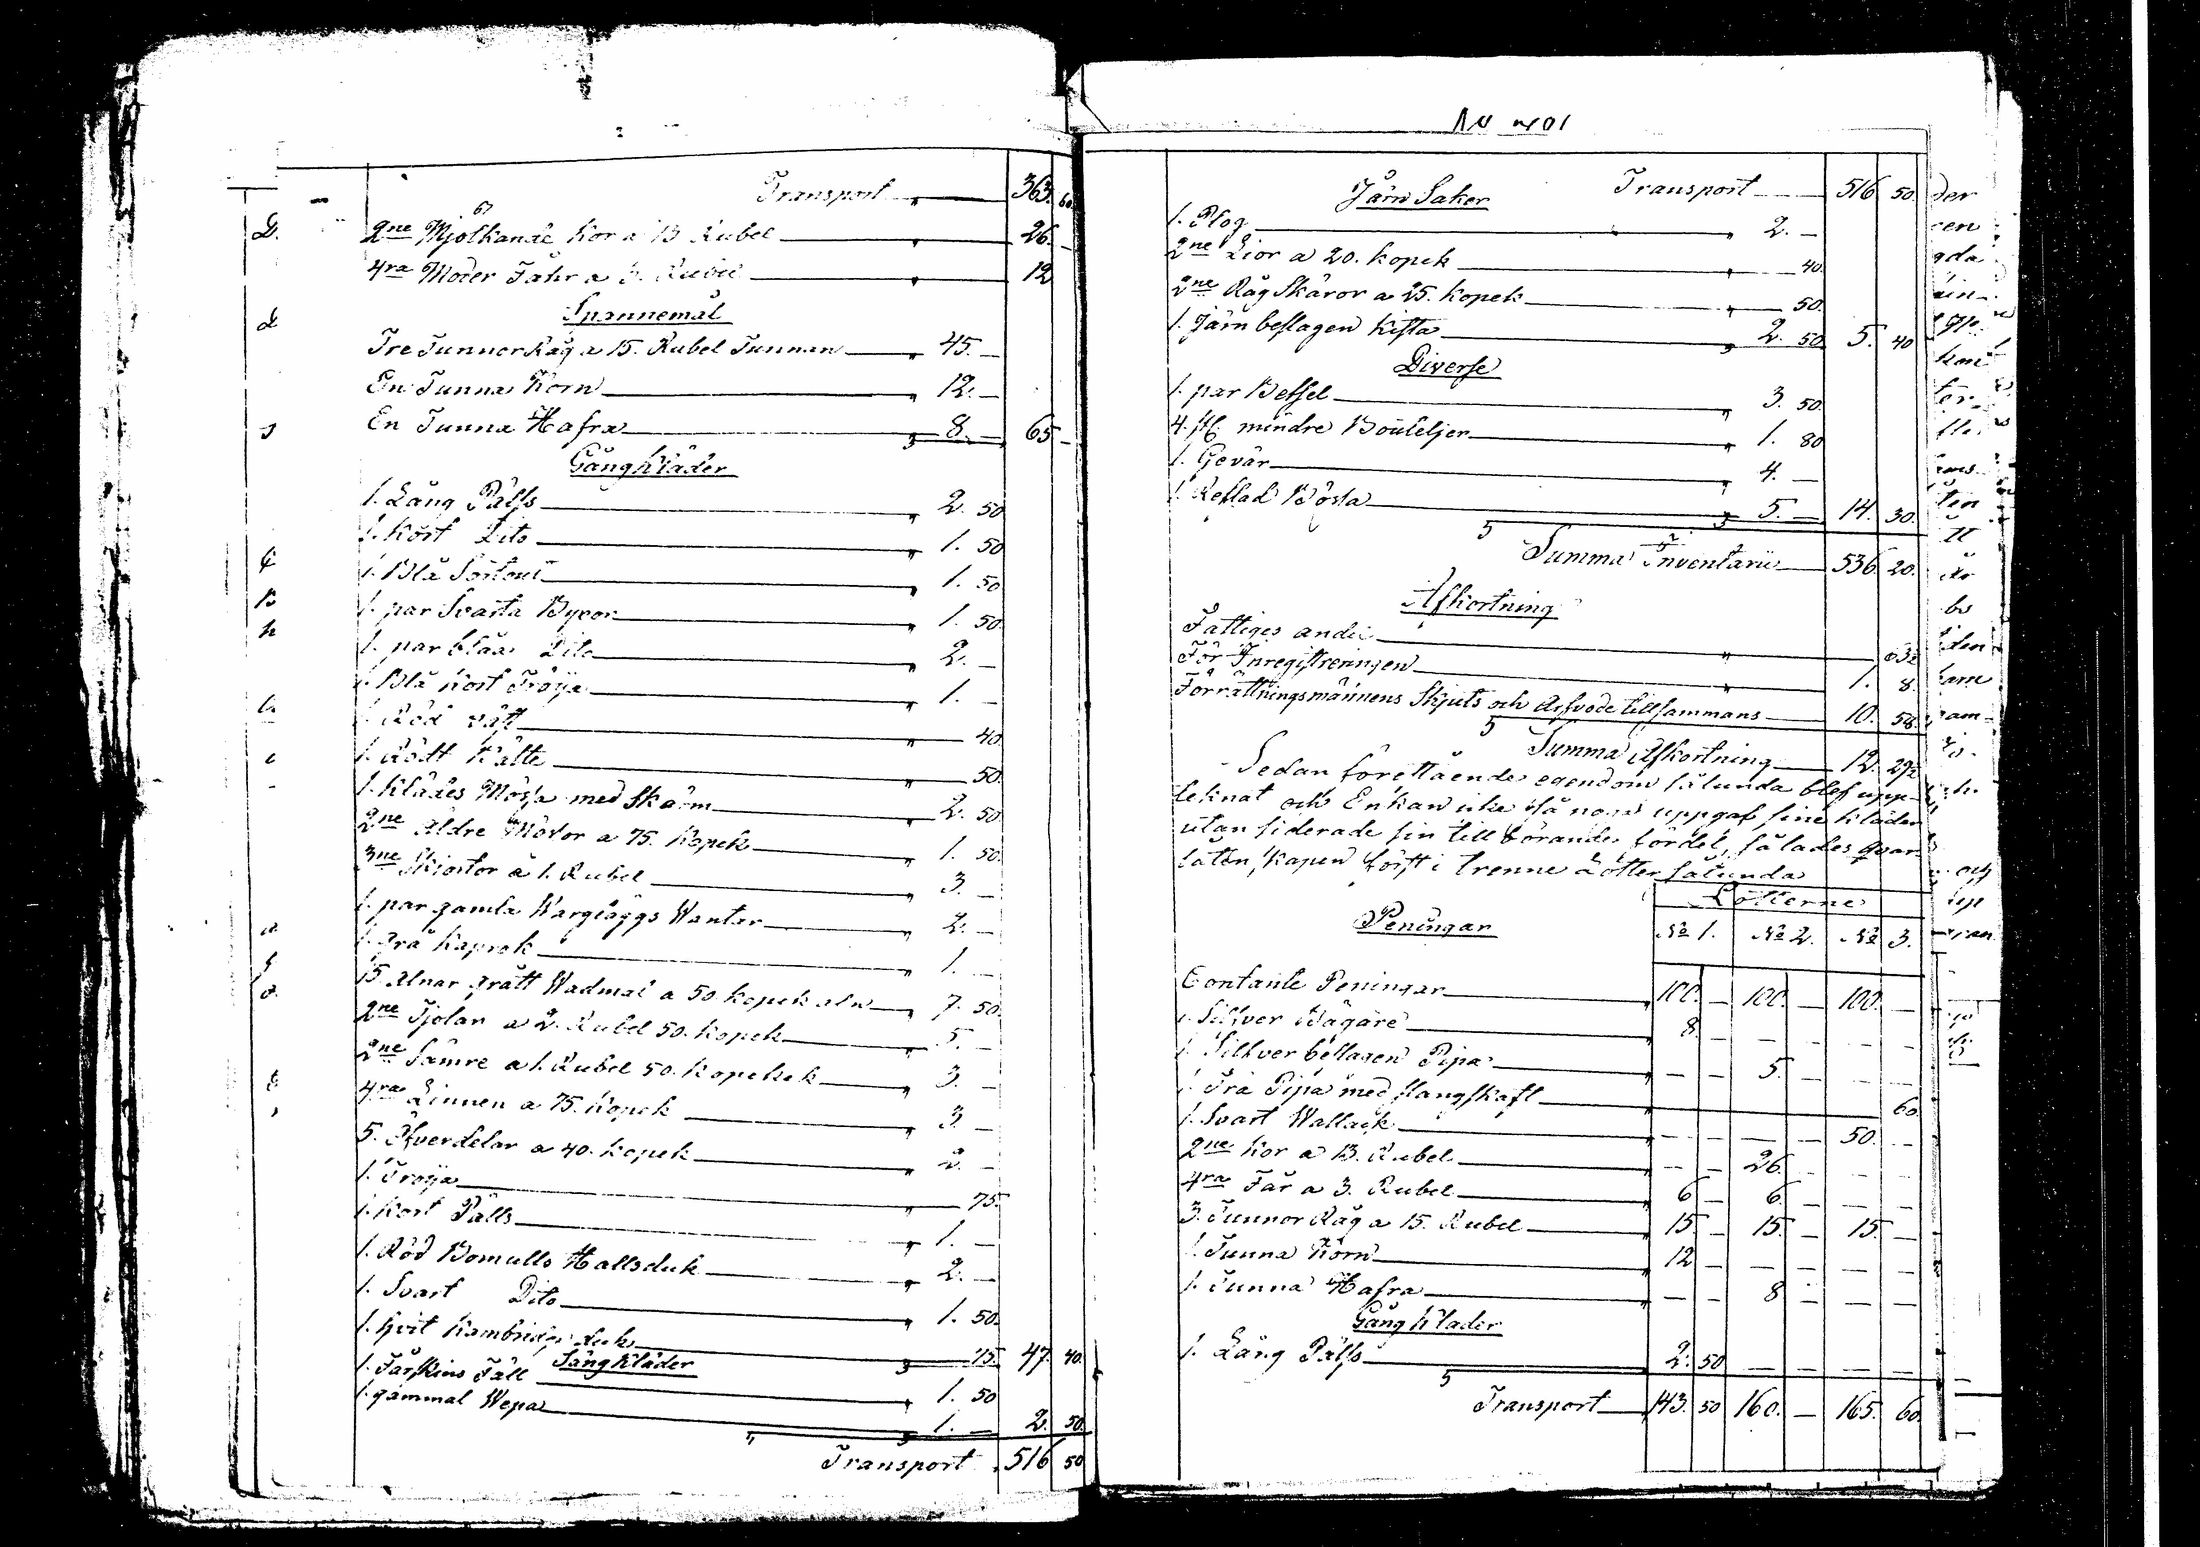 Transport 363. 60
2ne Mjölkande Kor a 13 Rubel 26. —
4ra Moder Fåhr a 3. Rubel 12
Spannemål
Tre Tunnor Råg a 15. Rubel Tunnan 45. —
En Tunna Korn 12. —
En Tunna Hafra 8. — 65 —
Gångkläder
1. Lång Pälts 2. 50
1. Kort Dito 1. 50
1. Blå Sortout 1. 50
1. par Svarta Byxor 1. 50
1. par blåa Dito 2. —
1. Blå Kort Tröija 1. —
1. Röd väst 40.
1. Rödt Bälte 50.
1. Klädes Mössa med Skärm 2. 50
2ne äldre Mössor a 75. Kopek 1. 50.
3ne Skjortor a 1. Rubel 3. —
1. par gamla Wargläggs Wantar 2. —
1. Grå Kaprok 1. —
15. Alnar grått Wadmal a 50. Kopek aln 7. 50.
2ne Tjolar a 2. Rubel 50. Kopek 5. —
2ne Sämre a 1. Rubel 50. Kopek 3. —
4ra Linnen a 75. Kopek 3 —
5. Öfverdelar a 40. Kopek 2. —
1. Tröya 75.
1. Kort Pälts 1. —
1. Röd Bomulls Hallsduk 2. —
1. Svart Dito 1. 50.
1. hvit Kambridgs duk 75. 47. 40.
Sängkläder
1. Fårskins Fäll 1. 50
1. gammal Wepa 1. — 2. 50.
Transport 516 50
Järn Saker Transport 516 50.
1. Plog 2. —
2ne Lior a 20. Kopek 40.
2ne Råg Skäror a 25. Kopek 50.
1. Järn beslagen Kista 2. 50. 5. 40
Diverse
1. par Betsel 3. 50.
4. st. mindre Bouteljer 1. 80
1. Gevär 4. —
1. Reflad Bössa 5. — 14. 30.
Summa Inventarii 536. 20.
Afkortning
Fattiges andel 63½
För Inregistreringen 1. 8.
Förrättningsmännens Skjuts och Arfvode tillsammans 10. 58.
Summa Afkortning 12. 29½
Sedan förestående egendom sålunda blef upp-
teknat och Enkan icke uppgaf sine kläder
utan siderade sin till börande fördel, sålades qvar
låten, kapen först i trenne Lotter sålunda
Lotterne
Peningar No 1. No 2. No 3.
Contante Peningar 100. — 100. — 100. —
1. Silfver Bägare 8. — — — — —
1. Silfver beslagen Pipa — — 5. — — —
1. Trä Pipa med slangskaft 60.
1. Svart Wallack — — — — 50. —
2ne Kor a 13. Rubel — — 26. — — —
4ra Får a 3. Rubel 6 — 6. — — —
3. Tunnor Råg a 15. Rubel 15. — 15. — 15. —
1. Tunna Korn 12 — — — — —
1. Tunna Hafra — — 8 — — —
Gång kläder
1. Lång Pälts 2. 50 — — — —
Transport 143. 50 160. — 165. 60.